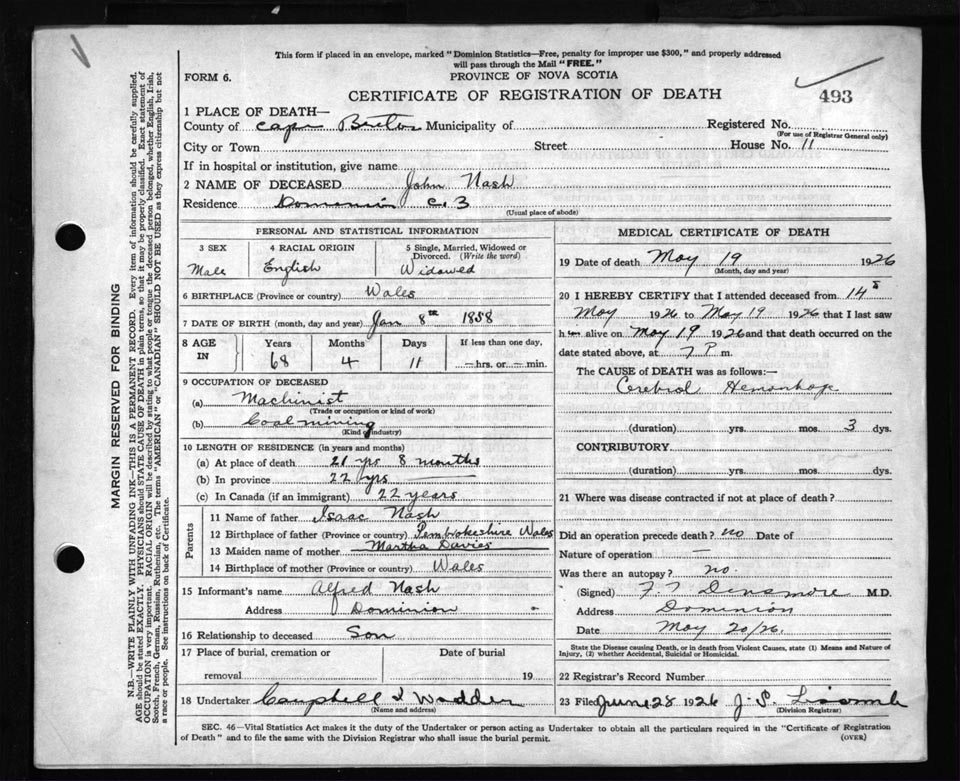 This form if placed in an envelope, marked "Dominion Statistics—Free, penalty for improper use $300," and properly addressed
will pass through the Mail "FREE."
FORM 6.
PROVINCE OF NOVA SCOTIA
CERTIFICATE OF REGISTRATION OF DEATH
493
1 PLACE OF DEATH—
County of Cape Breton Municipality of Registered No.
(For use of Registrar General only)
City or Town Street House No. 11
If in hospital or institution, give name
2 NAME OF DECEASED John Nash
Residence Dominion C. 3
(Usual place of abode)
PERSONAL AND STATISTICAL INFORMATION
3 SEX 4 RACIAL ORIGIN 5 Single, Married, Widowed or
Divorced. (Write the word)
Male English Widowed
6 BIRTHPLACE (Province or country) Wales
7 DATE OF BIRTH (month, day and year) Jan 8th 1858
8 AGE IN Years Months Days If less than one day,
68 4 11 —hrs. or —min.
9 OCCUPATION OF DECEASED
(a) Machinist
(Trade or occupation or kind of work)
(b) Coal mining
(Kind of industry)
10 LENGTH OF RESIDENCE (in years and months)
(a) At place of death 21 yrs 8 months
(b) In province 22 yrs
(c) In Canada (if an immigrant) 22 years
Parents
11 Name of father Isaac Nash
12 Birthplace of father (Province or country) Pembrokeshire Wales
13 Maiden name of mother Martha Davies
14 Birthplace of mother (Province or country) Wales
15 Informant's name Alfred Nash
Address Dominion
16 Relationship to deceased Son
17 Place of burial, cremation or Date of burial
removal 19
18 Undertaker Campbell & Wadden
(Name and address)
MEDICAL CERTIFICATE OF DEATH
19 Date of death May 19 1926
(Month, day and year)
20 I HEREBY CERTIFY that I attended deceased from 14
May 1926 to May 19 1926 that I last saw
him alive on May 19 1926 and that death occurred on
date stated above, at 7 P m.
The CAUSE OF DEATH was as follows:—
Cerebral Hemorrhage
(duration) yrs. mos. 3 dys.
CONTRIBUTORY
(duration) yrs. mos. dys.
21 Where was disease contracted if not at place of death?
Did an operation precede death? no Date of
Nature of operation —
Was there an autopsy? no.
(Signed) Densmore M.D.
Address Dominion
Date May 20/26.
State the Disease causing Death, or in death from Violent Causes, state (1) Means and Nature of
Injury, (2) whether Accidental, Suicidal or Homicidal.
22 Registrar's Record Number
23 Filed June 28 1926 J. S.
(Division Registrar)
SEC. 46—Vital Statistics Act makes it the duty of the Undertaker or person acting as Undertaker to obtain all the particulars required in the "Certificate of Registration
of Death" and to file the same with the Division Registrar who shall issue the burial permit.
(OVER)
MARGIN RESERVED FOR BINDING
N.B.—WRITE PLAINLY WITH UNFADING INK—THIS IS A PERMANENT RECORD. Every item of information should be carefully supplied.
AGE should be stated EXACTLY. PHYSICIANS should STATE CAUSE OF DEATH in plain terms, so that it may be properly classified. Exact statement of
OCCUPATION is very important. RACIAL ORIGIN will be described by stating to what people or tongue the deceased person belonged, whether English, Irish,
Scotch, French, German, Russian, Ruthenian, etc. The terms "AMERICAN" or "CANADIAN" SHOULD NOT BE USED as they express citizenship but not
a race or people. See instructions on back of Certificate.